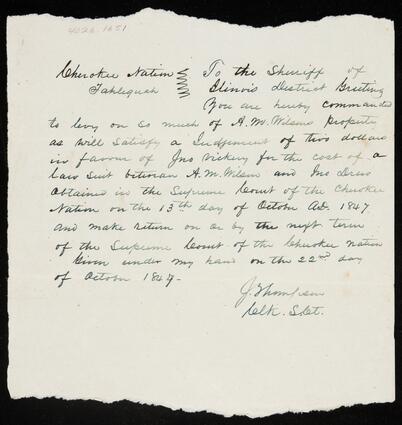 4026.1651
Cherokee Nation To the Sherriff of
Tahlequah Illinois District Greeting
You are hereby commanded
to levy on so much of A.M. Wilsons property
as will satisfy a Judgement of two dollars
in favour of Jno Vickery for the cost of a
law suit between A.M. Wilson and Jno Drew
obtained in the Supreme Court of the Cherokee
Nation on the 13th day of Octobr AD. 1847
and make return on or by the next term
of the Supreme Court of the Cherokee Nation
Given under my hand on the 22nd day
of Octobr 1847-
J. Thompson
Clk. S.Ct.